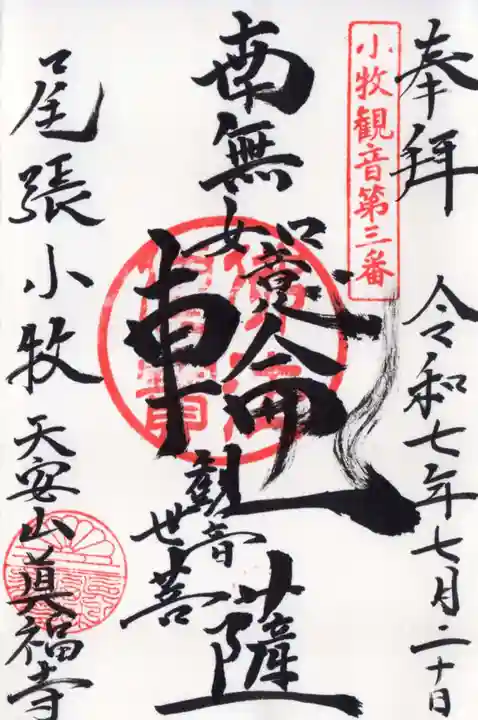 奉拝 令和七年七月二十日
小牧観音第三番
南無如意輪観世音菩薩
尾張小牧 天安山眞福寺